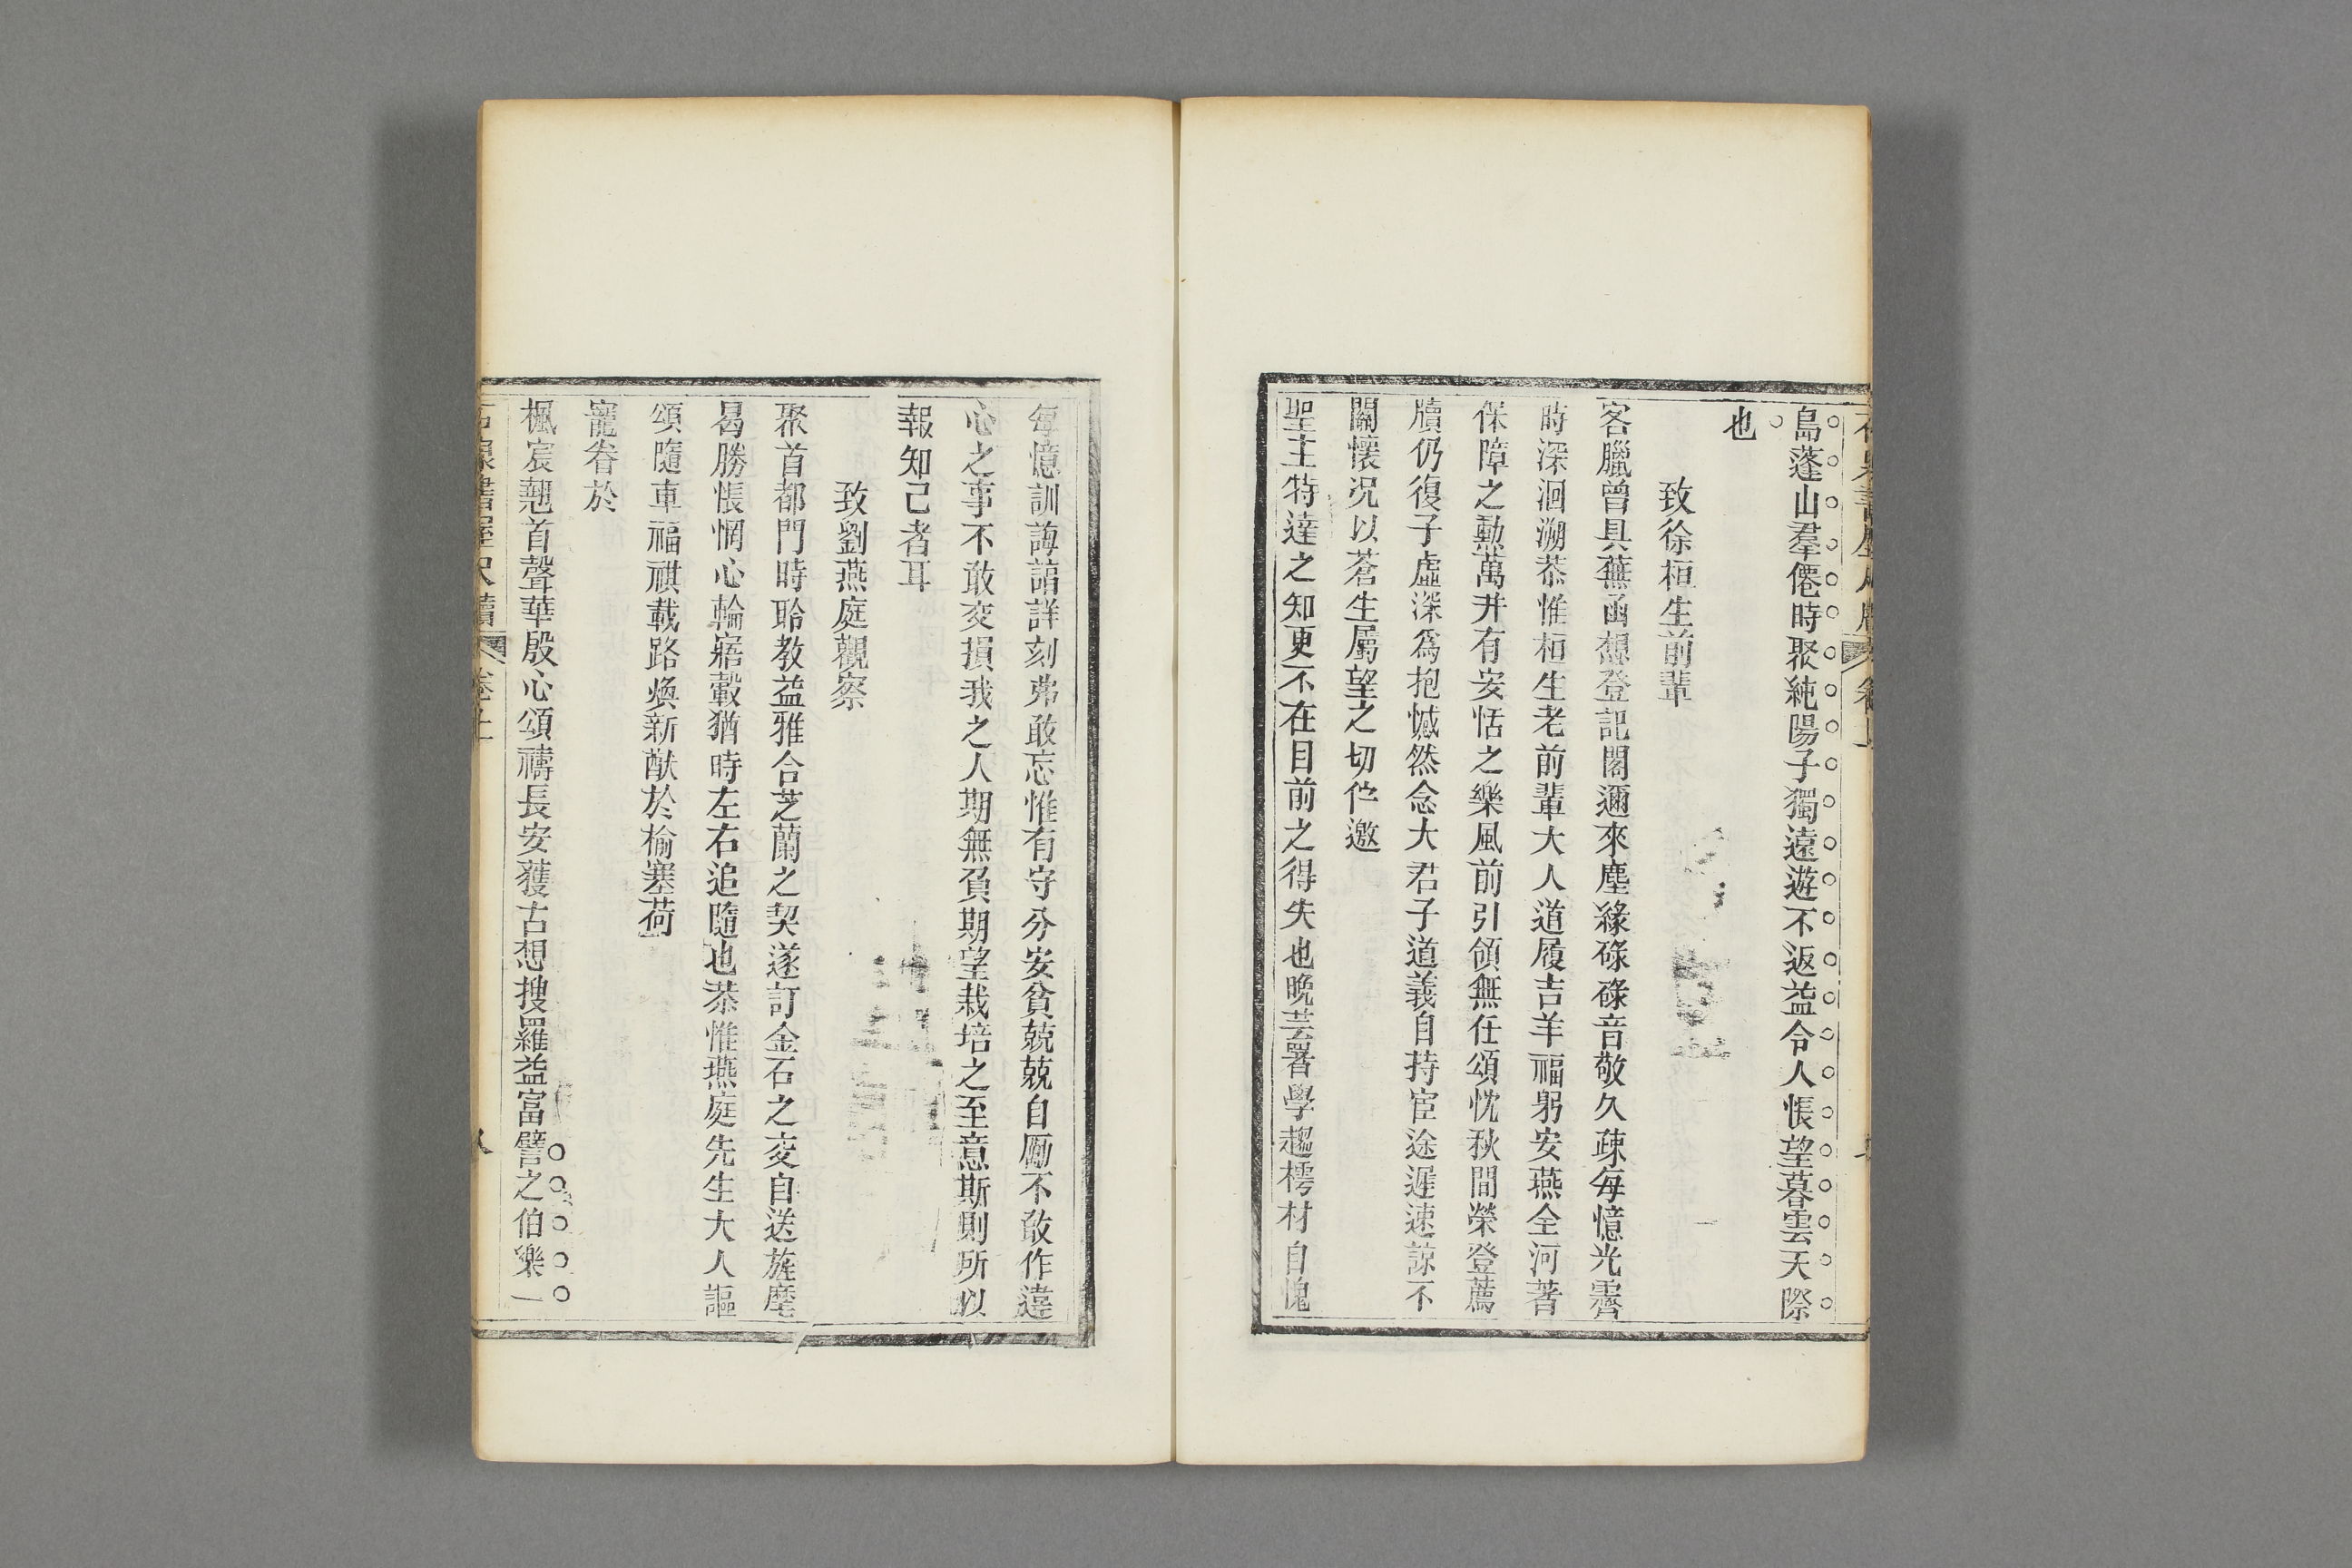 島蓬山羣僊時聚純陽子獨遠遊不返益令人悵望暮雲天際
也
致徐桓生前輩
客臘曾具蕪函想登記閣邇來塵緣碌碌音敬久疎每憶光霽
時深洄溯恭惟桓生老前輩大人道履吉羊福躬安燕全河著
保障之勳萬井有安恬之樂風前引領無任頌忱秋間榮登薦
牘仍復子虛深爲抱憾然念大君子道義自持宦途遲速諒不
關懷况以蒼生屬望之切伫邀
聖主特達之知更不在目前之得失也晚芸署學趨樗材自愧
每憶訓誨諳詳刻弗敢忘惟有守分安貧兢兢自勵不敢作違
心之事不敢交損我之人期無負期望栽培之至意斯則所以
報知己者耳
致劉燕庭觀察
聚首都門時聆教益雅合芝蘭之契遂訂金石之交自送旌麾
曷勝悵惘心輪寤轂猶時左右追隨也恭惟燕庭先生大人謳
頌隨車福祺載路煥新猷於榆塞荷
寵眷於
楓宸翹首聲華殷心頌禱長安獲古想搜羅益富譬之伯樂一
卷上